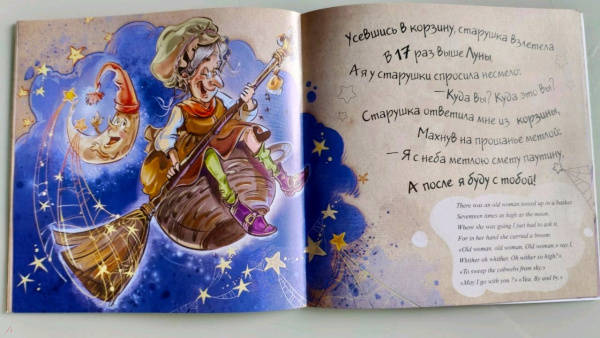 Усевшись в корзину, старушка взлетела
В 17 раз выше Луны,
А я у старушки спросила несмело:
— Куда Вы? Куда это Вы?
Старушка ответила мне из корзины,
Махнув на прощанье метлой:
— Я с неба метлою смету паутину,
А после я буду с тобой!
There was an old woman tossed up in a basket
Seventeen times as high as the moon,
Where she was going I just had to ask it,
For in her hand she carried a broom:
«Old woman, old woman, Old woman,» say I,
Whither oh whither, Oh wither so high?»
«To sweep the cobwebs from sky.»
«May I go with you ?» «Yea. By and by.»